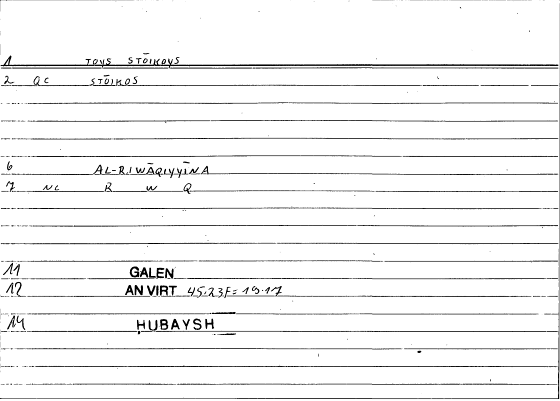 1 TOYS STŌIKOYS
2 QC STŌIKOS
6 AL-RIWĀQIYYĪNA
7 NC R W Q
11 GALEN
12 AN VIRT 45.23F = 19.17
14 ḤUBAYSH